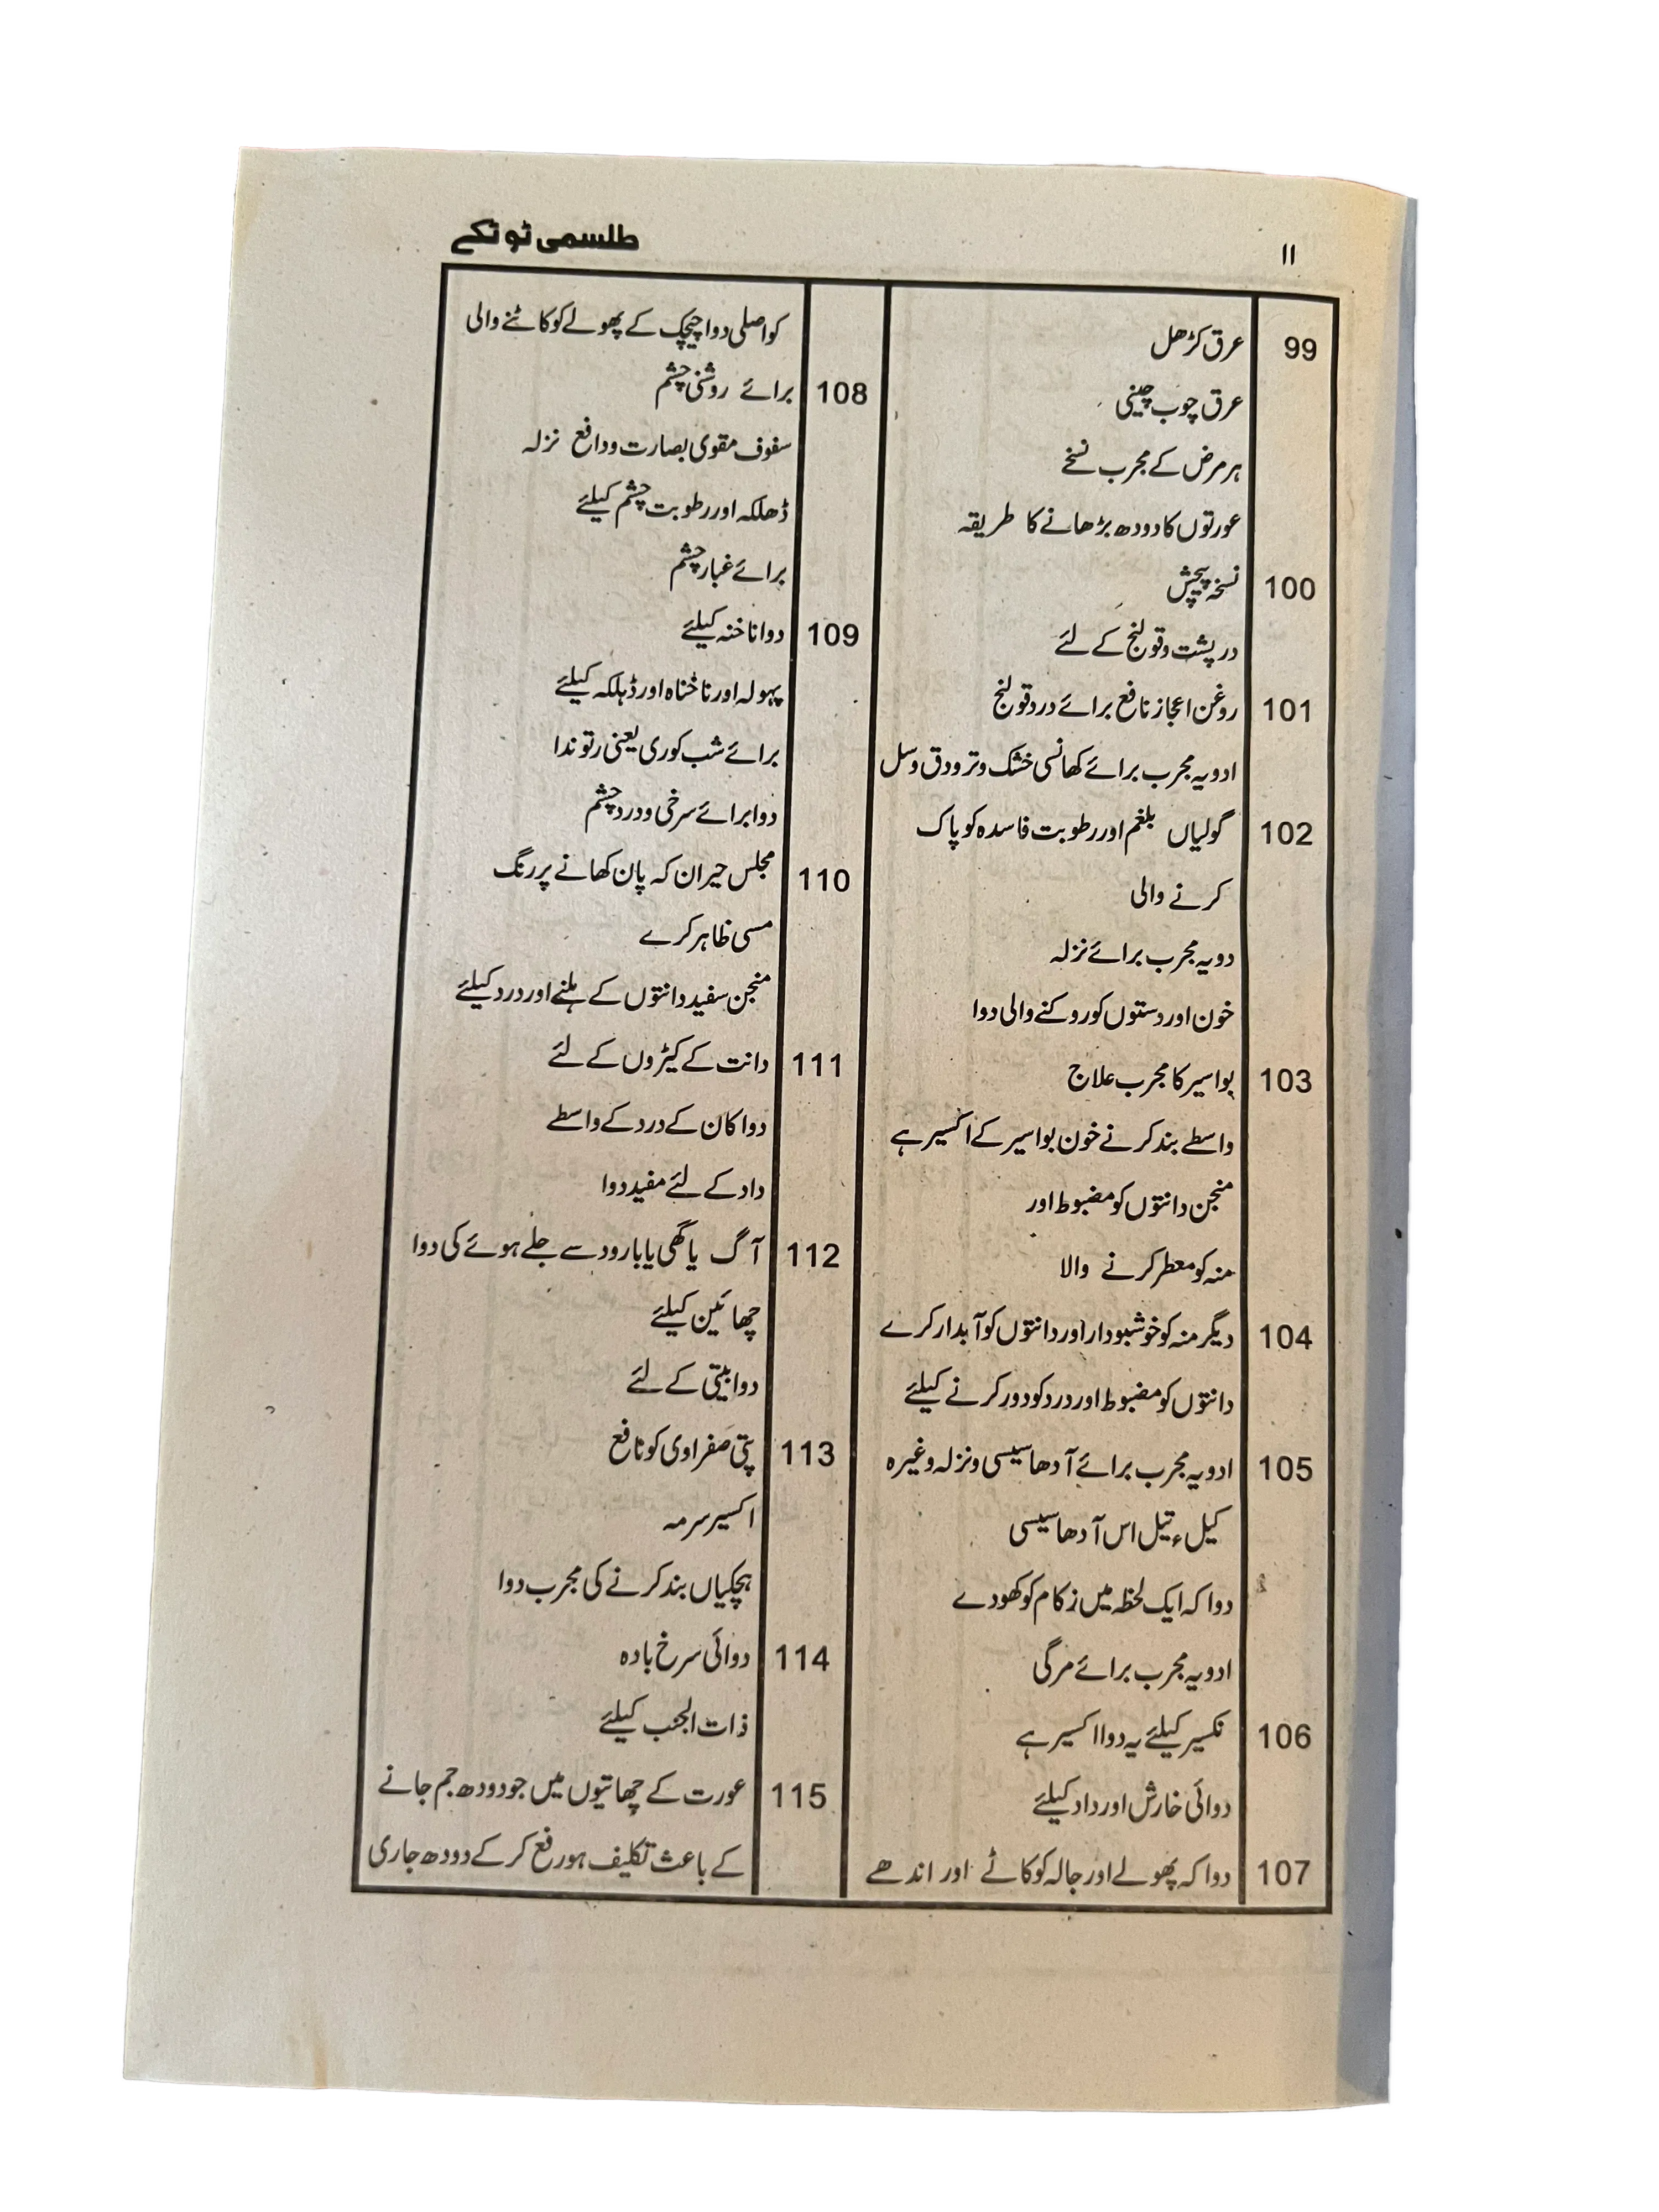 طلسمی ٹوٹکے
۱۱
99 عرق کڑھل
عرق چوب چینی
ہر مرض کے مجرب نسخے
عورتوں کا دودھ بڑھانے کا طریقہ
100 نسخہ پیچش
در پشت و قولنج کے لئے
101 روغن اعجاز نافع برائے درد قولنج
ادویہ مجرب برائے کھانسی خشک و تر و دق و سل
102 گولیاں بلغم اور رطوبت فاسدہ کو پاک
کرنے والی
دویہ مجرب برائے نزلہ
خون اور دستوں کو روکنے والی دوا
103 بواسیر کا مجرب علاج
واسطے بند کرنے خون بواسیر کے اکسیر ہے
منجن دانتوں کو مضبوط اور
منہ کو معطر کرنے والا
104 دیگر منہ کو خوشبودار اور دانتوں کو آبدار کرے
دانتوں کو مضبوط اور درد کو دور کرنے کیلئے
105 ادویہ مجرب برائے آدھا سیسی و نزلہ وغیرہ
کیل، تیل اس آدھا سیسی
دوا کہ ایک لحظہ میں زکام کو کھودے
ادویہ مجرب برائے مرگی
106 نکسیر کیلئے یہ دوا اکسیر ہے
دوائی خارش اور داد کیلئے
107 دوا کہ پھولے اور جالہ کو کاٹے اور اندھے
کو اصلی دوا چیچک کے پھولے کو کاٹنے والی
108 برائے روشنی چشم
سفوف مقوی بصارت و دافع نزلہ
ڈھلکہ اور رطوبت چشم کیلئے
برائے غبار چشم
109 دوا ناخنہ کیلئے
پہولہ اور ناخناہ اور ڈہلکہ کیلئے
برائے شب کوری یعنی رتوندا
دوا برائے سرخی و درد چشم
110 مجلس حیران کہ پان کھانے پر رنگ
مسی ظاہر کرے
منجن سفید دانتوں کے ہلنے اور درد کیلئے
111 دانت کے کیڑوں کے لئے
دوا کان کے درد کے واسطے
داد کے لئے مفید دوا
112 آگ یا گھی یا بارود سے جلے ہوئے کی دوا
چھائین کیلئے
دوا بیتی کے لئے
113 پتی صفراوی کو نافع
اکسیر سرمہ
ہچکیاں بند کرنے کی مجرب دوا
114 دوائی سرخ بادہ
ذات الجنب کیلئے
115 عورت کے چھاتیوں میں جو دودھ جم جانے
کے باعث تکلیف ہو رفع کر کے دودھ جاری